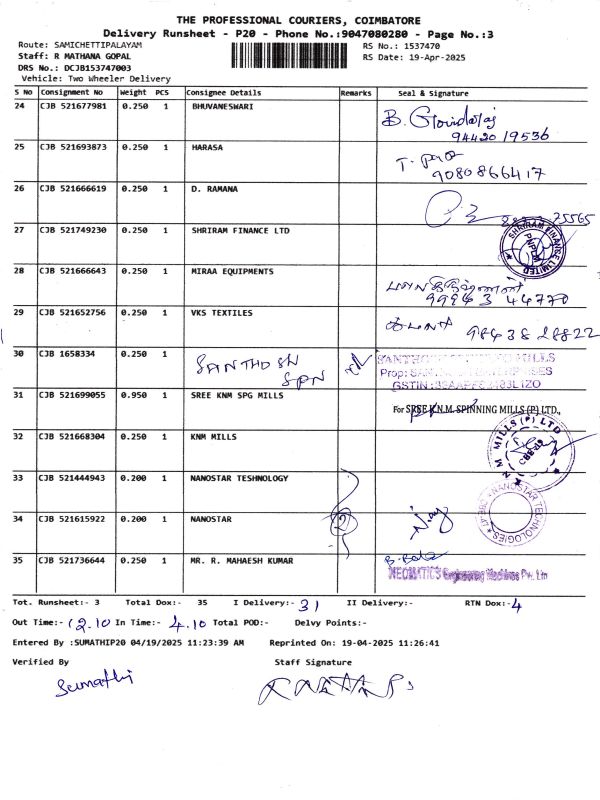 THE PROFESSIONAL COURIERS, COIMBATORE
Delivery Runsheet - P20 - Phone No.:9047080280 - Page No.:3
Route: SAMICHETTIPALAYAM
RS No.: 1537470
Staff: R MATHANA GOPAL
RS Date: 19-Apr-2025
DRS No.: DCJB153747003
Vehicle: Two Wheeler Delivery
S No Consignment No Weight PCS Consignee Details Remarks Seal & Signature
24 CJB 521677981 0.250 1 BHUVANESWARI B. Govindaraj
94420 19536
25 CJB 521693873 0.250 1 HARASA
9080866417
26 CJB 521666619 0.250 1 D. RAMANA
27 CJB 521749230 0.250 1 SHRIRAM FINANCE LTD SHRIRAM FINANCE LIMITED
28 CJB 521666643 0.250 1 MIRAA EQUIPMENTS
99943 44770
29 CJB 521652756 0.250 1 VKS TEXTILES 98438 28822
30 CJB 1658334 0.250 1 SANTHOSH
SPN
31 CJB 521699055 0.950 1 SREE KNM SPG MILLS For SREE K.N.M. SPINNING MILLS (P) LTD.,
32 CJB 521668304 0.250 1 KNM MILLS K N M MILLS (P) LTD
33 CJB 521444943 0.200 1 NANOSTAR TESHNOLOGY
34 CJB 521615922 0.200 1 NANOSTAR 2 NANOSTAR TECHNOLOGIES
35 CJB 521736644 0.250 1 MR. R. MAHAESH KUMAR
NEOMATICS Engineering Machines Pvt. Ltd
Tot. Runsheet:- 3 Total Dox:- 35 I Delivery:- 31 II Delivery:- RTN Dox:- 4
Out Time:- 12.10 In Time:- 4.10 Total POD:- Delvy Points:-
Entered By :SUMATHIP20 04/19/2025 11:23:39 AM Reprinted On: 19-04-2025 11:26:41
Verified By Staff Signature
Sumathi